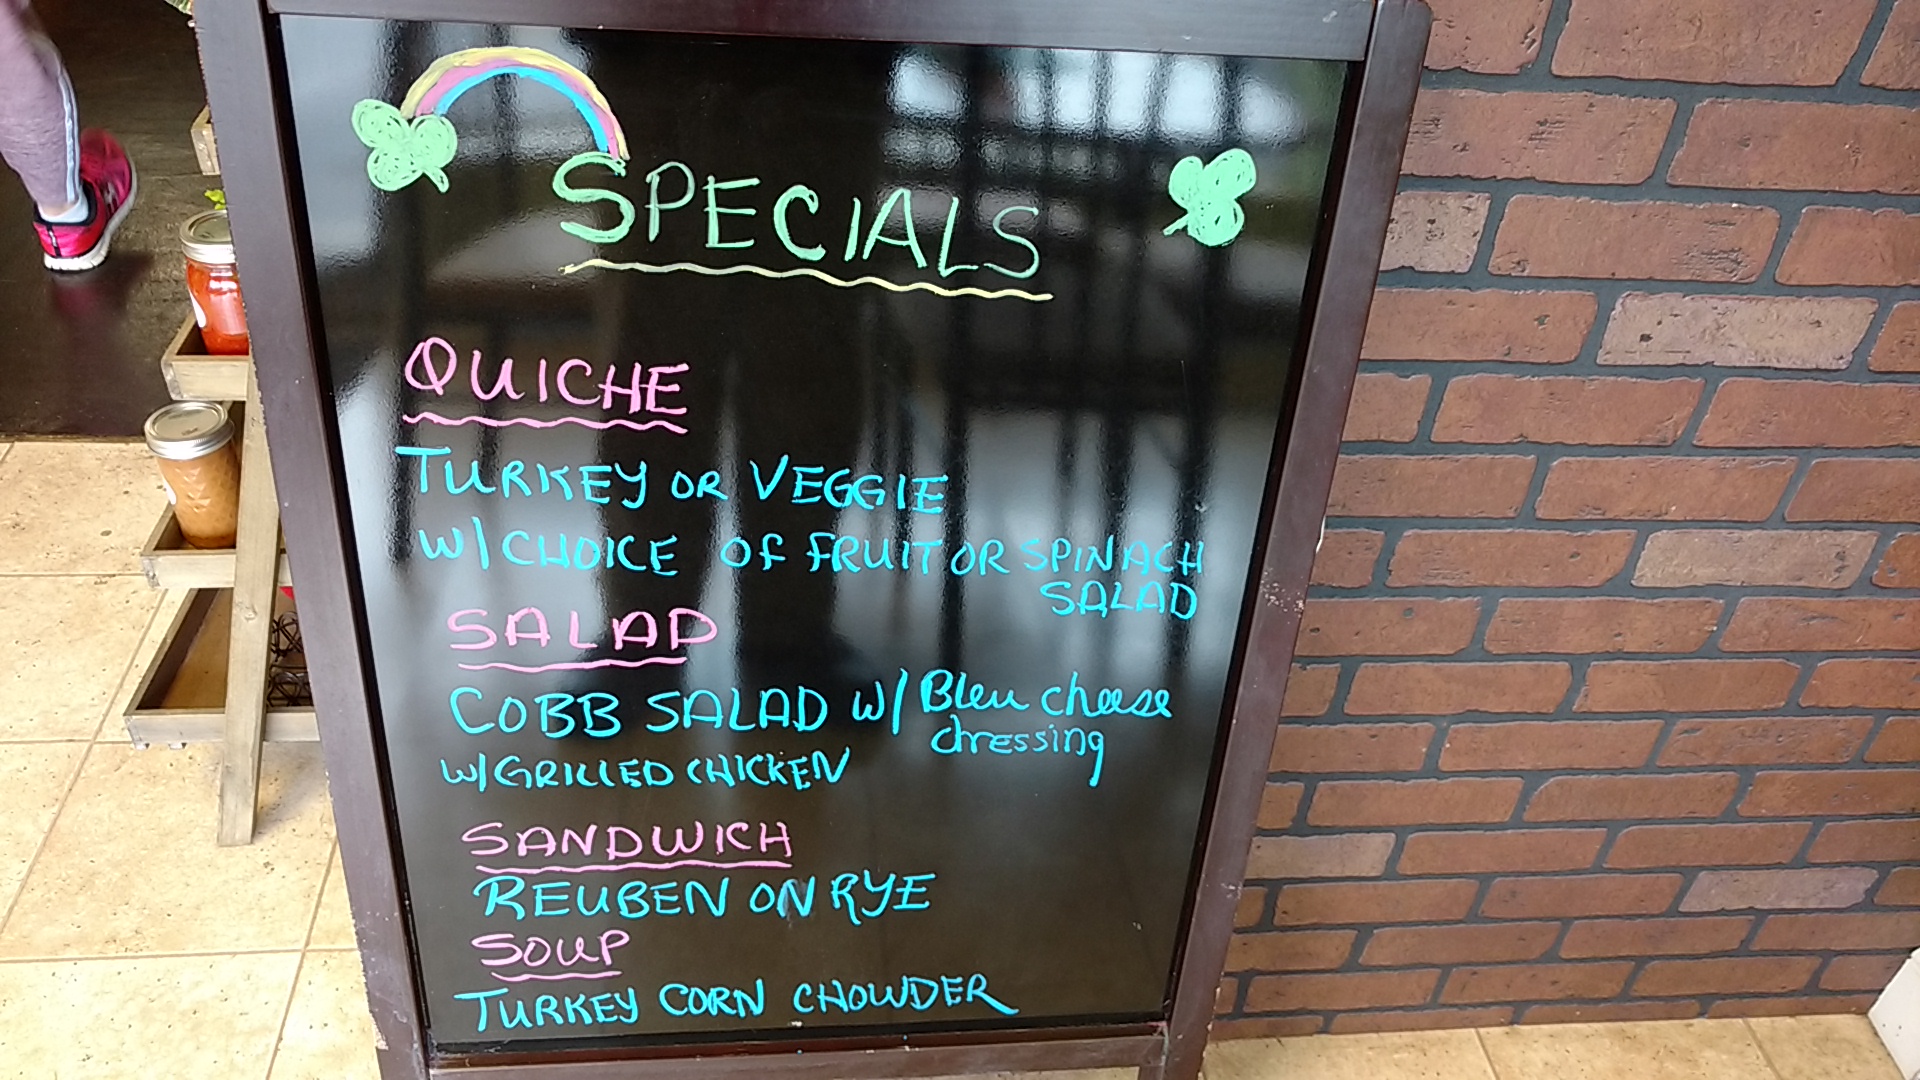 SPECIALS
QUICHE
TURKEY OR VEGGIE
W/ CHOICE OF FRUIT OR SPINACH
SALAD
SALAD
COBB SALAD W/ Bleu cheese
dressing
W/ GRILLED CHICKEN
SANDWICH
REUBEN ON RYE
SOUP
TURKEY CORN CHOWDER